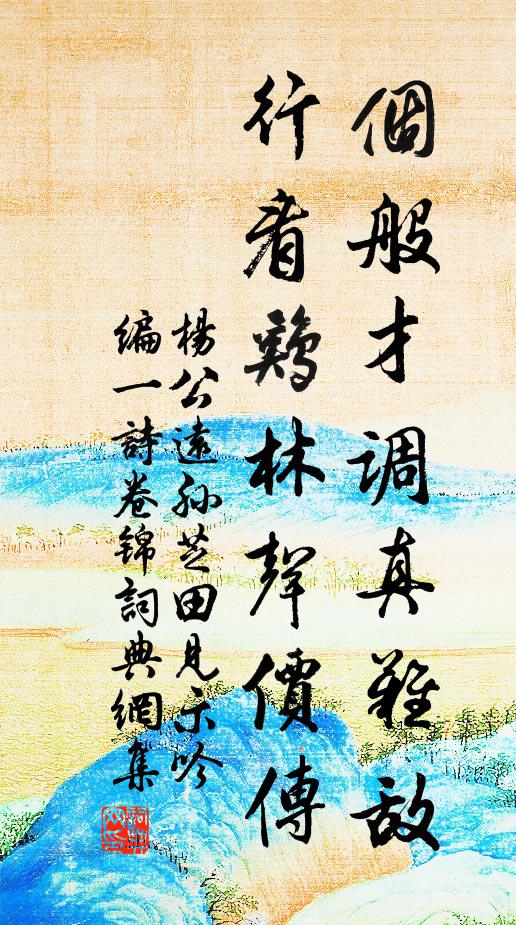 個般才調真難敵
行看鷄林聲價傳
楊公遠孫芝田見示吟
編一詩卷錦詞典網集